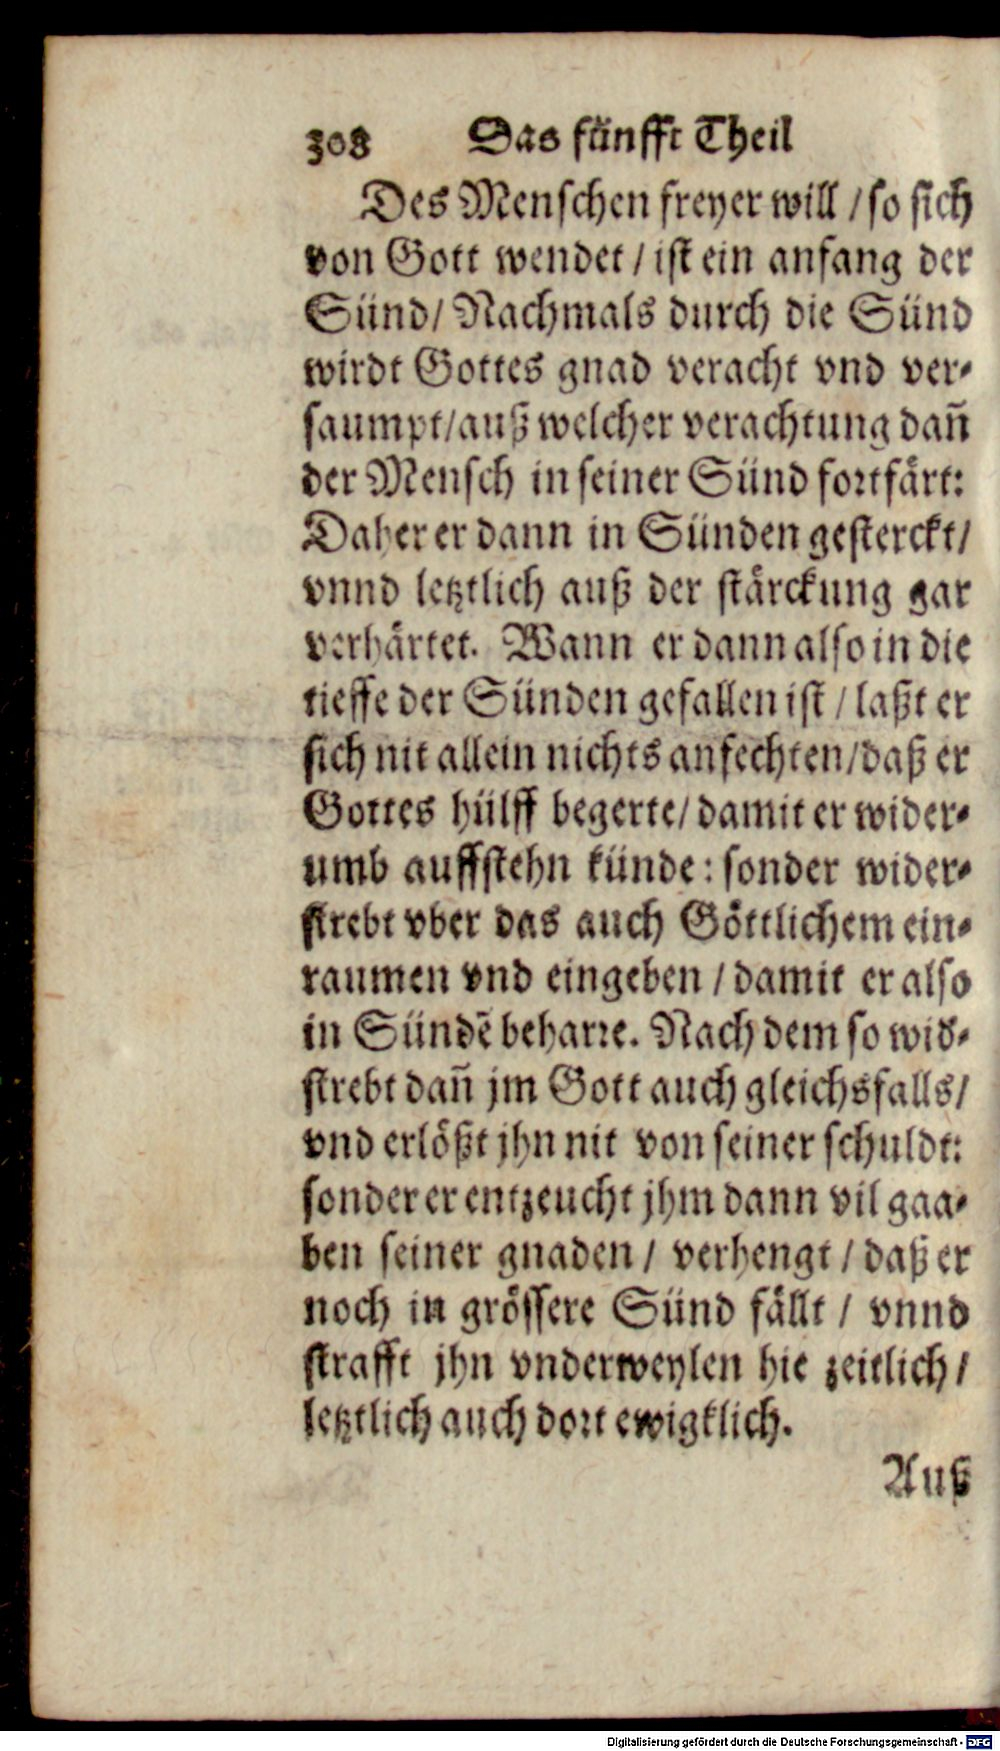 308 Das fünfft Theil
Des Menschen freyer will / so sich
von Gott wendet / ist ein anfang der
Sünd / Nachmals durch die Sünd
wirdt Gottes gnad veracht vnd ver-
saumpt / auß welcher verachtung dañ
der Mensch in seiner Sünd fortfärt:
Daher er dann in Sünden gesterckt /
vnnd letztlich auß der stärckung gar
verhärtet. Wann er dann also in die
tieffe der Sünden gefallen ist / laßt er
sich nit allein nichts anfechten / daß er
Gottes hülff begerte / damit er wider-
umb auffstehn künde: sonder wider-
strebt vber das auch Göttlichem ein-
raumen vnd eingeben / damit er also
in Sündẽ beharre. Nach dem so wid-
strebt dañ jm Gott auch gleichsfalls /
vnd erlößt jhn nit von seiner schuldt:
sonder er entzeucht jhm dann vil gaa-
ben seiner gnaden / verhengt / daß er
noch in grössere Sünd fällt / vnnd
strafft jhn vnderweylen hie zeitlich /
letztlich auch dort ewigklich.
Auß
Digitalisierung gefördert durch die Deutsche Forschungsgemeinschaft - DFG